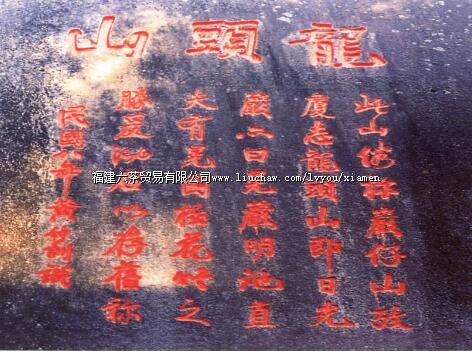 龍頭山
此山俗称巖仔山攷
廈志龍頭山即日光
巖一曰晃巖明池直
夫有晃園極花竹之
勝爰泐以存舊称
民國六年黄仲訓識
福建六茶贸易有限公司 www.liuchaw.com/lvyou/xiamen